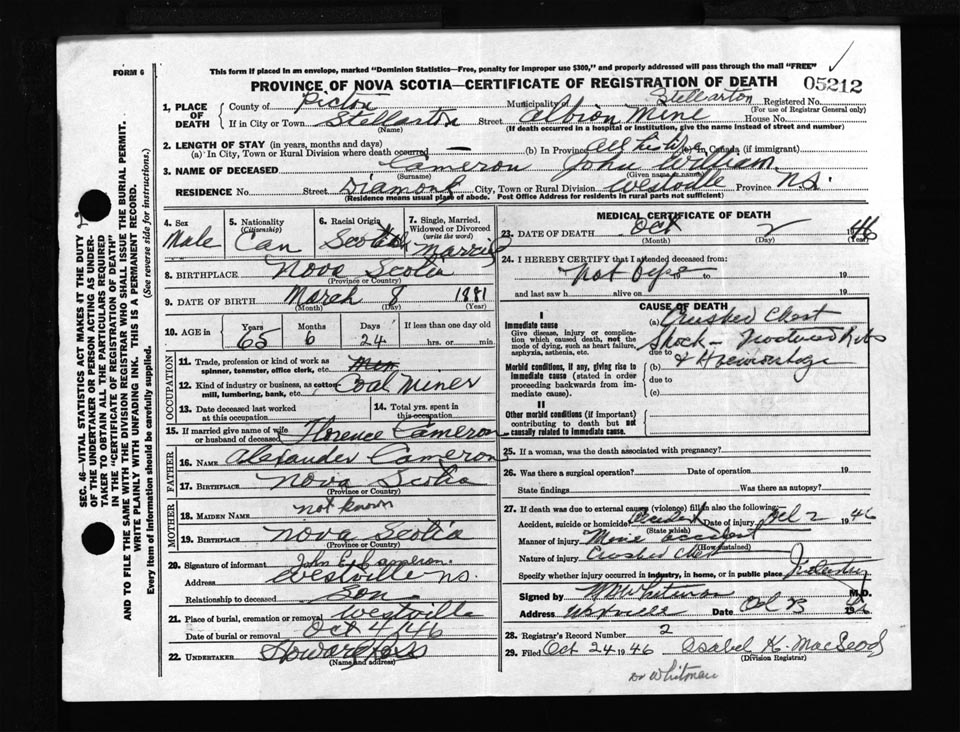 FORM 6
This form if placed in an envelope, marked "Dominion Statistics—Free, penalty for improper use $300," and properly addressed will pass through the mail "FREE"
PROVINCE OF NOVA SCOTIA—CERTIFICATE OF REGISTRATION OF DEATH
05212
1. PLACE OF DEATH
County of Pictou Municipality of Stellarton Registered No.
(For use of Registrar General only)
If in City or Town Stellarton Street Albion Mine House No.
(Name) (If death occurred in a hospital or institution, give the name instead of street and number)
2. LENGTH OF STAY (in years, months and days)
(a) In City, Town or Rural Division where death occurred — (b) In Province All his life (c) In Canada (if immigrant)
3. NAME OF DECEASED Cameron John William
(Surname) (Given name or names)
RESIDENCE No. Street Diamond City, Town or Rural Division Westville Province N.S.
(Residence means usual place of abode. Post Office Address for residents in rural parts not sufficient)
4. Sex Male
5. Nationality (Citizenship) Can
6. Racial Origin Scotch
7. Single, Married, Widowed or Divorced (write the word) Married
8. BIRTHPLACE Nova Scotia
(Province or Country)
9. DATE OF BIRTH March 8 1881
(Month) (Day) (Year)
10. AGE in Years 65 Months 6 Days 24 If less than one day old hrs. or min.
OCCUPATION
11. Trade, profession or kind of work as spinner, teamster, office clerk, etc.
12. Kind of industry or business, as cotton mill, lumbering, bank, etc. Coal Miner
13. Date deceased last worked at this occupation
14. Total yrs. spent in this occupation
15. If married give name of wife or husband of deceased Florence Cameron
FATHER
16. NAME Alexander Cameron
17. BIRTHPLACE Nova Scotia
(Province or Country)
MOTHER
18. MAIDEN NAME not known
19. BIRTHPLACE Nova Scotia
(Province or Country)
20. Signature of informant John E. Cameron
Address Westville N.S.
Relationship to deceased Son
21. Place of burial, cremation or removal Westville
Date of burial or removal Oct 4/46
22. UNDERTAKER Howard Ross
(Name and address)
MEDICAL CERTIFICATE OF DEATH
23. DATE OF DEATH Oct 2 1946
(Month) (Day) (Year)
24. I HEREBY CERTIFY that I attended deceased from:
19 to 19
and last saw h alive on 19
CAUSE OF DEATH
I
Immediate cause
Give disease, injury or complication which caused death, not the mode of dying, such as heart failure, asphyxia, asthenia, etc.
(a) Crushed Chest
Shock – Fractured Ribs
due to & Haemorrhage
Morbid conditions, if any, giving rise to immediate cause (stated in order proceeding backwards from immediate cause).
(b)
due to
(c)
II
Other morbid conditions (if important) contributing to death but not causally related to immediate cause.
25. If a woman, was the death associated with pregnancy?
26. Was there a surgical operation? Date of operation 19
State findings Was there an autopsy?
27. If death was due to external causes (violence) fill in also the following:
Accident, suicide or homicide? Accident Date of injury Oct 2 1946
(State which)
Manner of injury Mine accident
(How sustained)
Nature of injury Crushed Chest
Specify whether injury occurred in industry, in home, or in public place Industry
Signed by Whitman M.D.
Address Westville Date Oct 1946
28. Registrar's Record Number 2
29. Filed Oct 24 1946 Isabel K. MacLeod
(Division Registrar)
Dr Whitman
SEC. 46—VITAL STATISTICS ACT MAKES IT THE DUTY
OF THE UNDERTAKER OR PERSON ACTING AS UNDER-
TAKER TO OBTAIN ALL THE PARTICULARS REQUIRED
IN THE "CERTIFICATE OF REGISTRATION OF DEATH"
AND TO FILE THE SAME WITH THE DIVISION REGISTRAR WHO SHALL ISSUE THE BURIAL PERMIT.
WRITE PLAINLY WITH UNFADING INK. THIS IS A PERMANENT RECORD.
Every item of information should be carefully supplied. (See reverse side for instructions.)